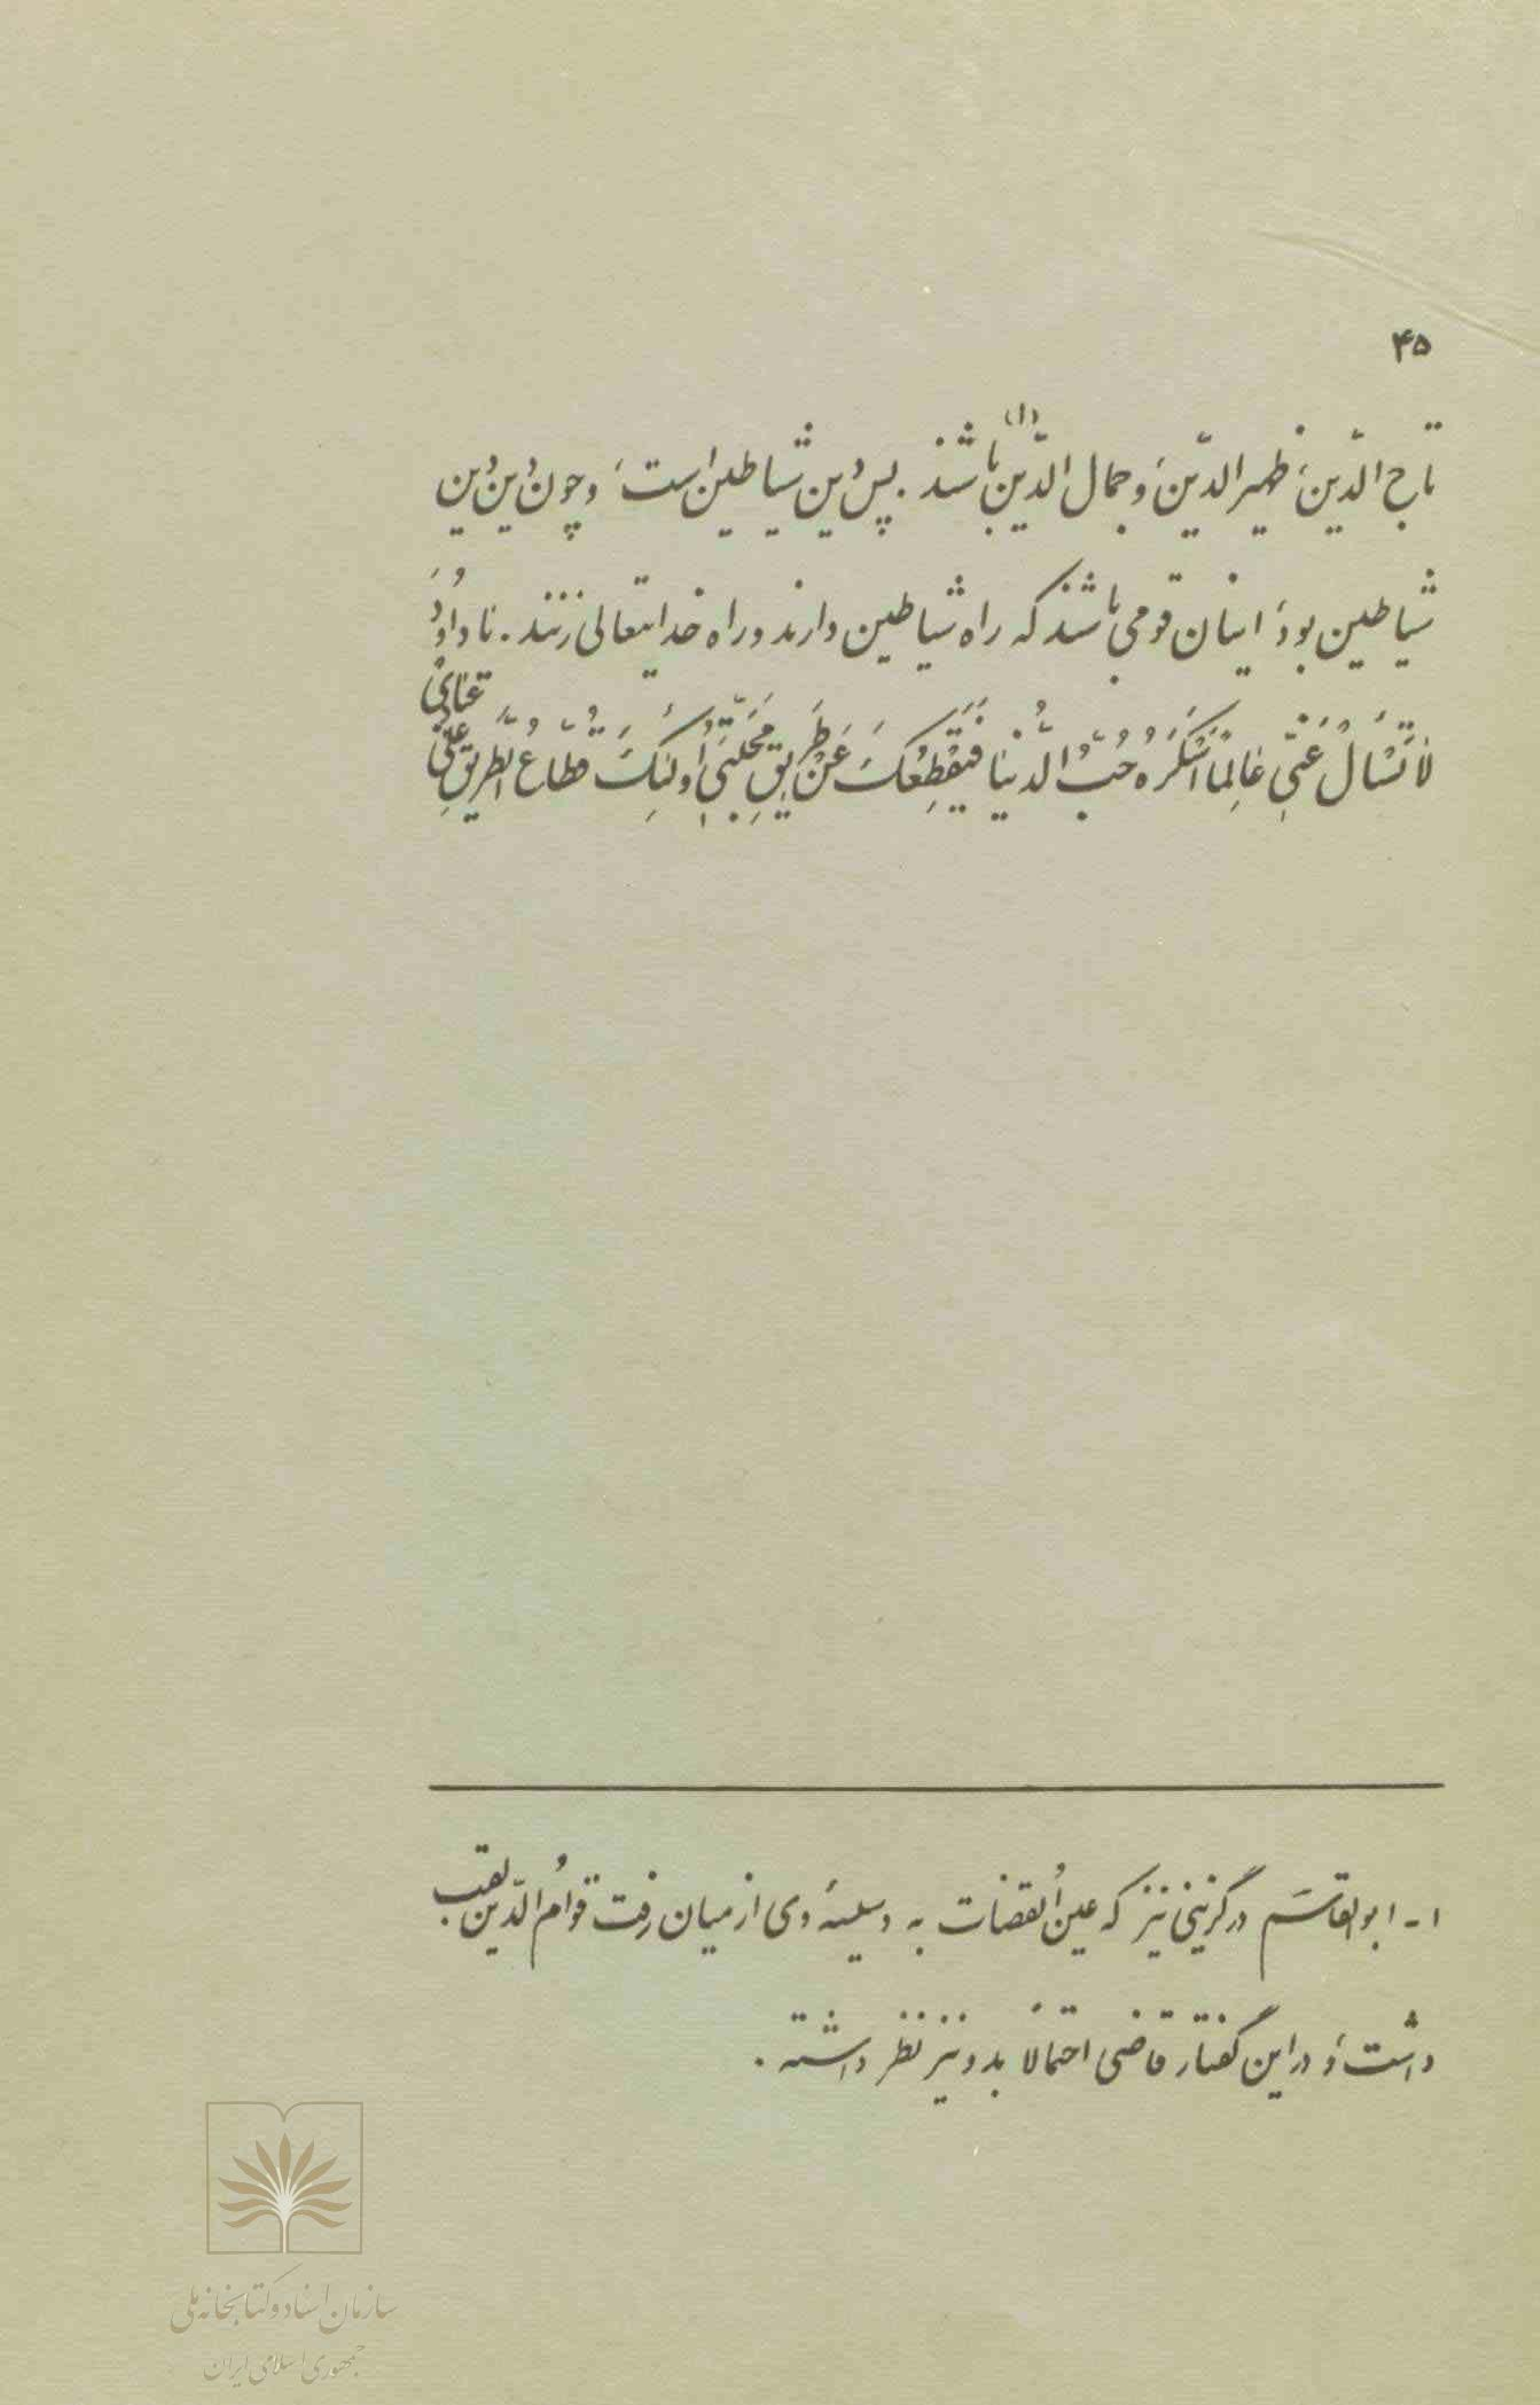 ۴۵
تاج الدّین، ظهیر الدّین، و جمال الدّین باشند(۱). پس دین شیاطین است، و چون دین دین
شیاطین بود، اینان قومی باشند که راه شیاطین دارند و راه خدایتعالی زنند. یا داوُدُ،
لاٰ تَسْأَلْ عَنّی عٰالِمًا اَسْکَرَهُ حُبُّ الدُّنْیٰا فَیَقْطَعُکَ عَنْ طَریقِ مَحَبَّتی، أُولٰئِکَ قُطّٰاعُ الطَّریقِ عَلیٰ
عِبٰادی
۱ـ ابوالقاسم درگزینی نیز که عین القضات به وسیلهٔ وی از میان رفت قوامُ الدّین لقب
داشت، و در این گفتار قاضی احتمالاً بدو نیز نظر داشته.
سازمان اسناد و کتابخانه ملی
جمهوری اسلامی ایران